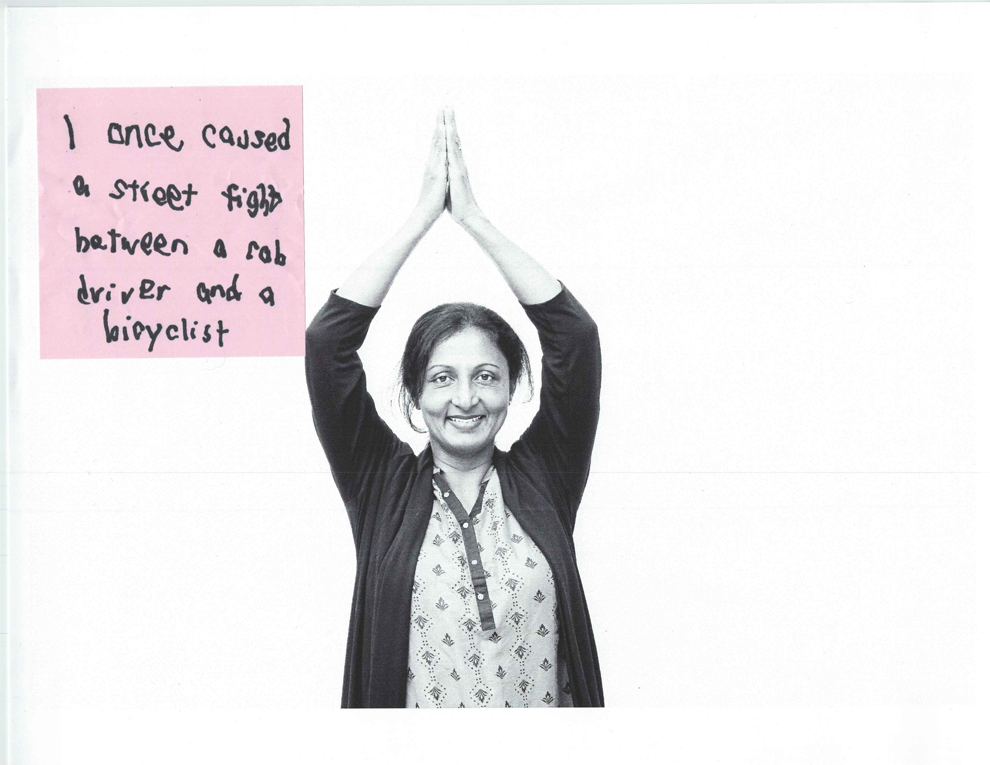 I once caused
a street fight
between a cab
driver and a
bicyclist